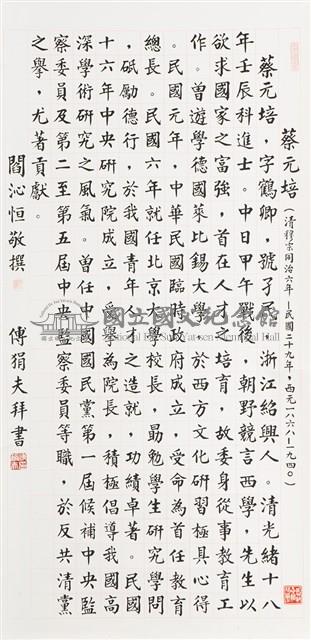 蔡元培（清穆宗同治六年－民國二十九年，西元一八六八－一九四〇）
蔡元培，字鶴卿，號孑民，浙江紹興人。清光緒十八
年壬辰科進士。中日甲午戰後，朝野競言西學，先生以
欲求國家之富強，首在人才之培育，故委身從事教育工
作。曾遊學德國萊比錫大學，於西方文化研習極具心得
。民國元年，中華民國臨時政府成立，受命為首任教育
總長。民國六年就任北京大學校長，勗勉學生研究學問
，砥勵德行，於我國青年才之造就，功績卓著。民國
十六年中央研究院成立，受擧為院長，積極倡導我國高
深學術研究之風氣。曾任中國國民黨第一屆候補中央監
察委員及第二至第五屆中央監察委員等職，於反共清黨
之擧，尤著貢獻。
閻沁恒敬撰　傅狷夫拜書
國立國父紀念館